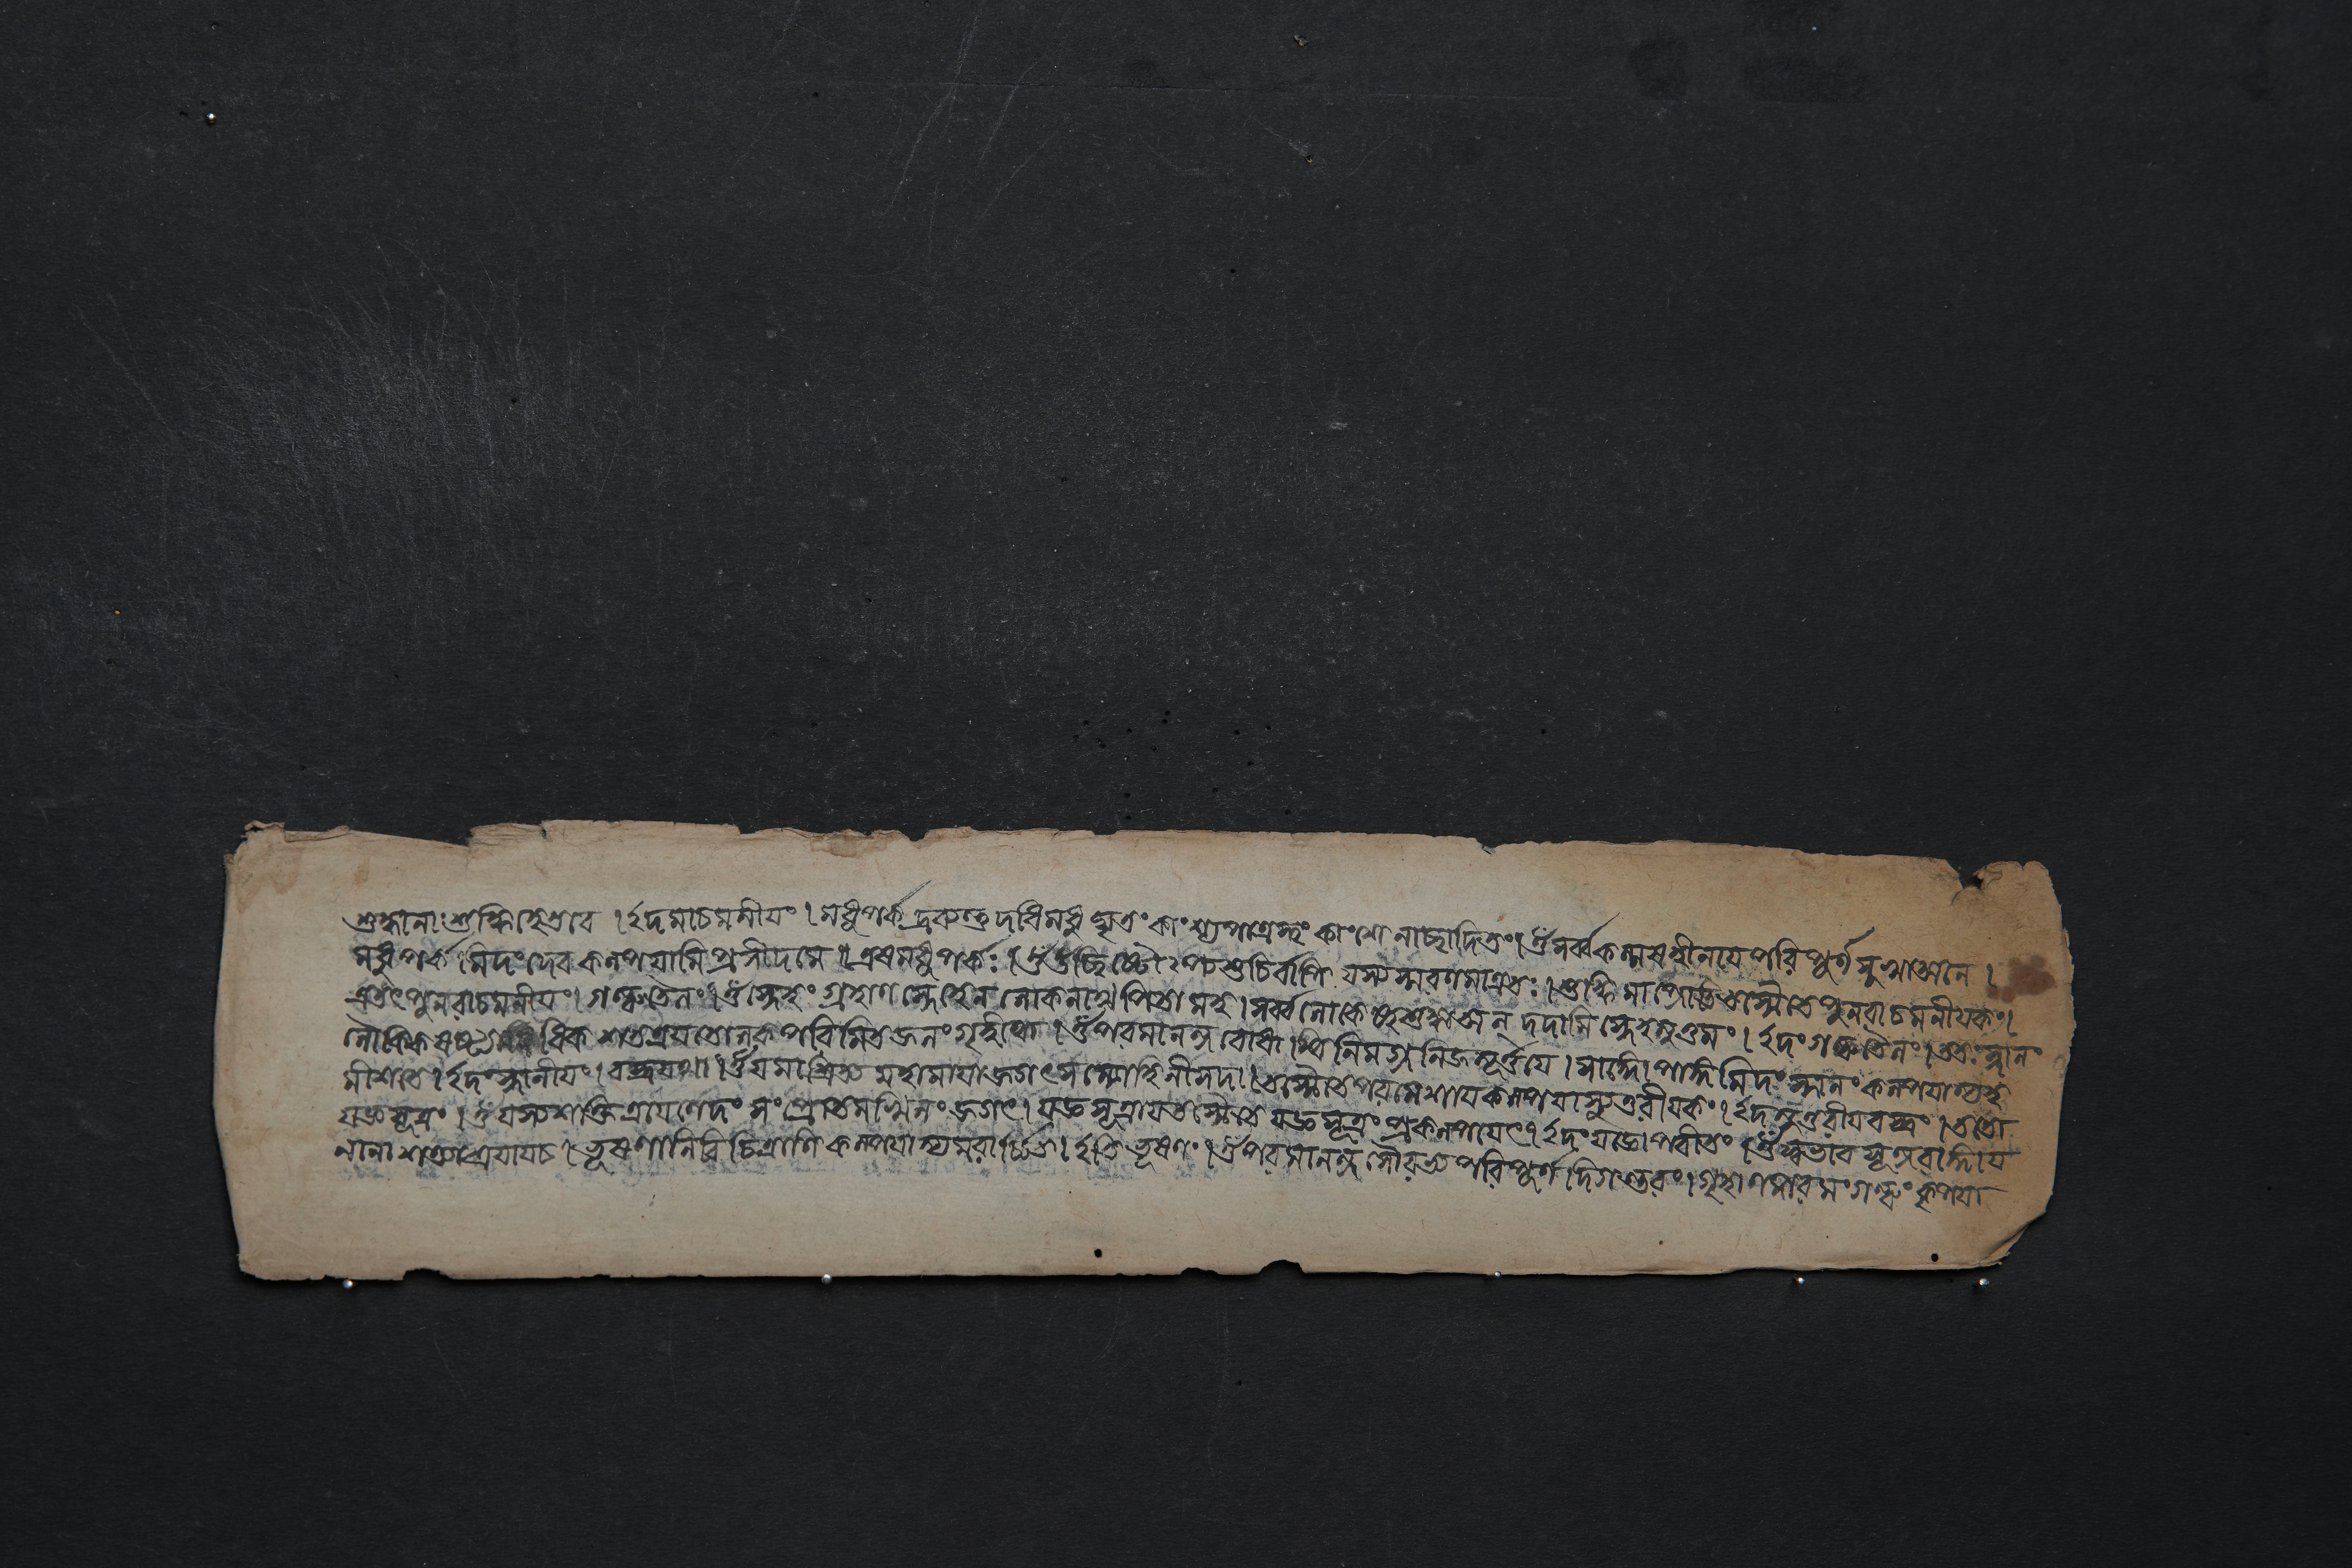 শুদ্ধানাং শুদ্ধিহেতবে । ইদমাচমনীয়ং । মধুপর্কদ্রব্যন্তু দধিমধুঘৃতং কাংশ্যপাত্রস্থং কাংশ্যেনাচ্ছাদিতং । ওঁ সর্ব্বকল্মষহীনায় পরিপূর্ণসুখাত্মনে ।
মধুপর্কমিদং দেব কল্পয়ামি প্রসীদ মে । এষ মধুপর্কঃ । ওঁ উচ্ছিষ্টোঽপ্যশুচির্বাপি যস্য স্মরণমাত্রতঃ । শুদ্ধিমাপ্নোতি তস্মৈ তে পুনরাচমনীয়কং ।
এতৎ পুনরাচমনীয়ং । গন্ধতৈলং । ওঁ স্নেহং গৃহাণ স্নেহেন লোকনাথ মহাশয় । সর্ব্বলোকেষু শুদ্ধাত্মন্ দদামি স্নেহমুত্তমং । ইদং গন্ধতৈলং । ততঃ স্নানং
শতত্রয়তোলকপরিমিতজলং গৃহীত্বা । ওঁ পরমানন্দবোধাব্ধিনিমগ্ননিজমূর্ত্তয়ে । সাঙ্গোপাঙ্গমিদং স্নানং কল্পয়াম্যহ
মীশ তে । ইদং স্নানীয়ং । বস্ত্রদ্বয়ং । ওঁ যমাশ্রিত্য মহামায়া জগৎসম্মোহিনী সদা । তস্মৈ তে পরমেশায় কল্পয়াম্যুত্তরীয়কং । ইদমুত্তরীয়বস্ত্রং । ততো
যজ্ঞসূত্রং । ওঁ যস্য শক্তিত্রয়েণেদং সংপ্রোতমখিলং জগৎ । যজ্ঞসূত্রায় তস্মৈ তে যজ্ঞসূত্রং প্রকল্পয়েৎ । ইদং যজ্ঞোপবীতং । ওঁ স্বভাবসুন্দরাঙ্গায়
নানাশক্ত্যাশ্রয়ায় চ । ভূষণানি বিচিত্রাণি কল্পয়াম্যমরার্চ্চিত । ইতি ভূষণং । ওঁ পরমানন্দসৌরভ্যপরিপূর্ণদিগন্তরং । গৃহাণ পরমং গন্ধং কৃপয়া